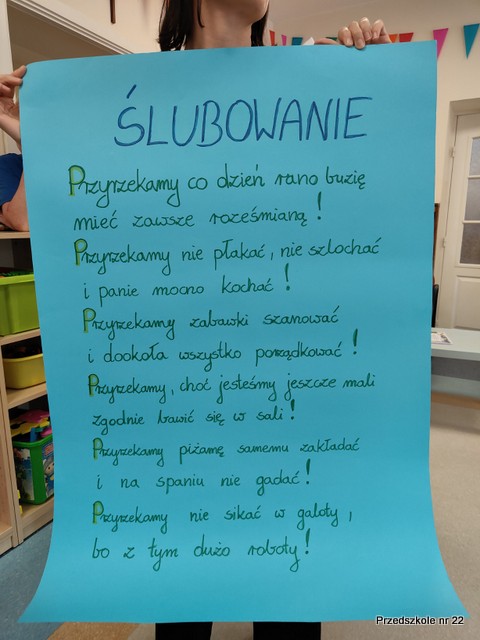 ŚLUBOWANIE
Przyrzekamy co dzień rano buzię
mieć zawsze roześmianą!
Przyrzekamy nie płakać, nie szlochać
i panie mocno kochać!
Przyrzekamy zabawki szanować
i dookoła wszystko porządkować!
Przyrzekamy, choć jesteśmy jeszcze mali
zgodnie bawić się w sali!
Przyrzekamy piżamę samemu zakładać
i na spaniu nie gadać!
Przyrzekamy nie sikać w galoty,
bo z tym dużo roboty!
Przedszkole nr 22